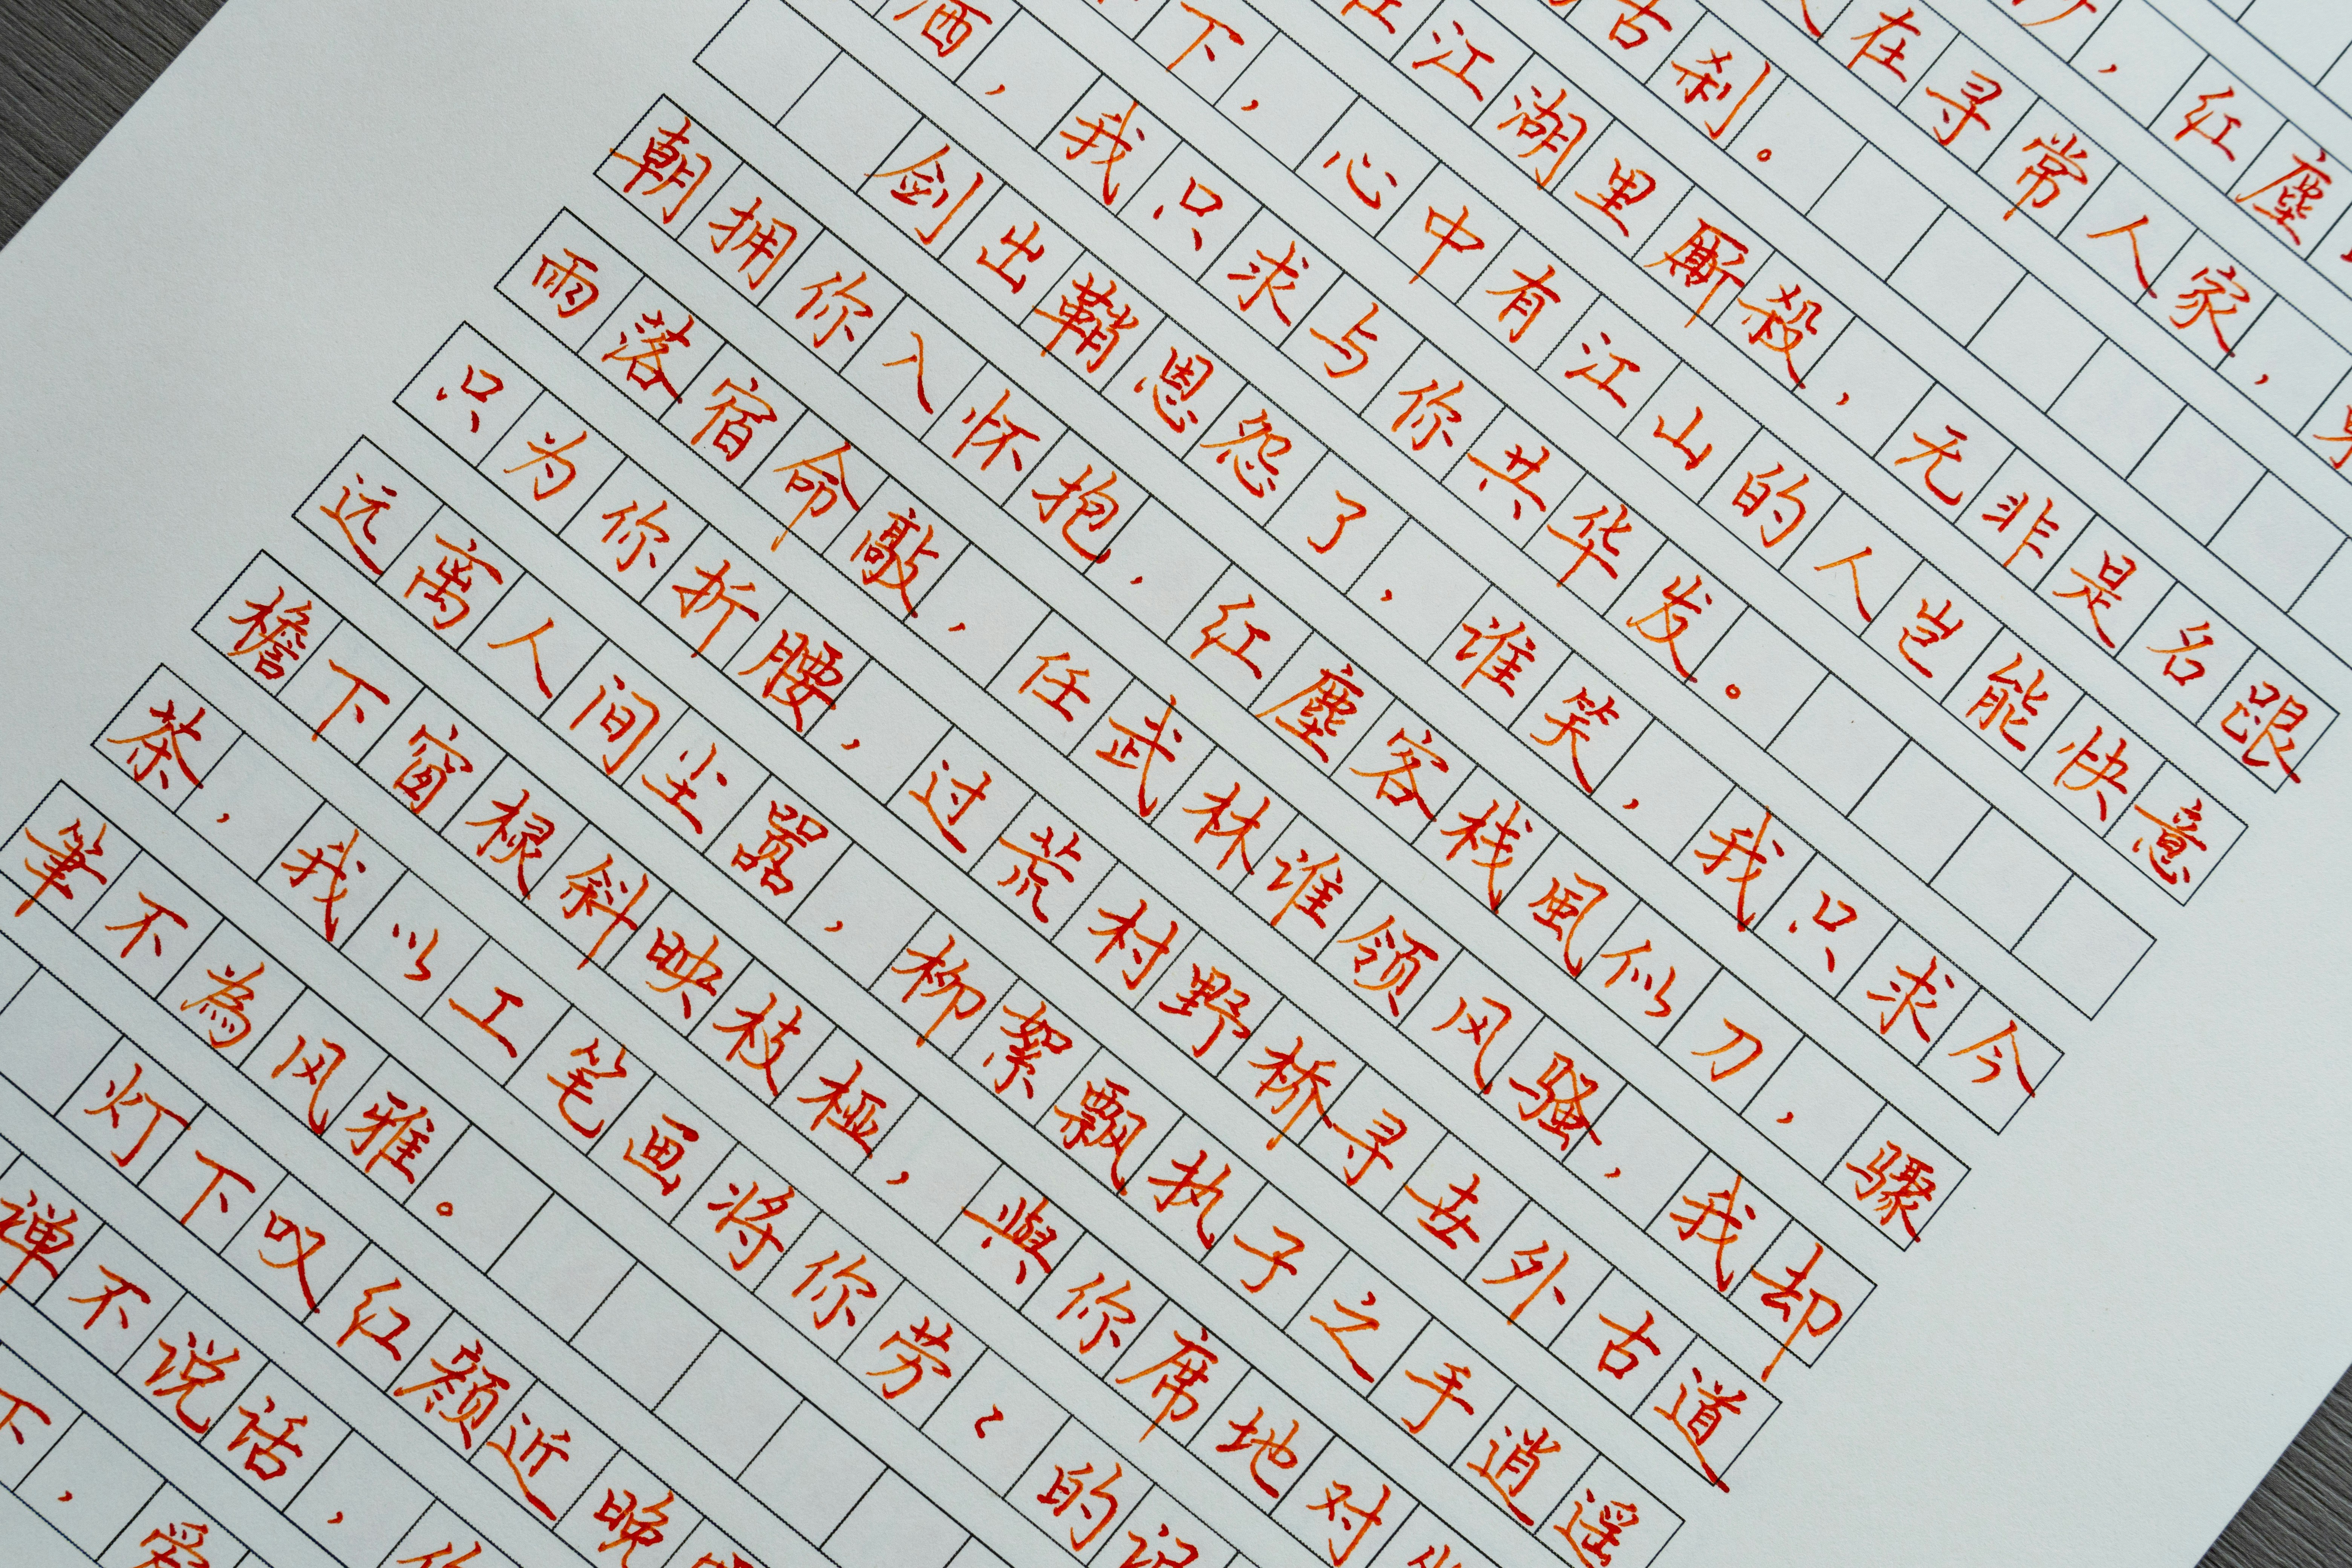 ，红塵
在寻常人家，
古刹。
江湖里厮殺，无非是名跟
下，心中有江山的人岂能快意
洒，我只求与你共华发。
剑出鞘恩怨了，谁笑，我只求今
朝拥你入怀抱，红塵客栈風似刀，骤
雨落宿命敲，任武林谁领风骚，我却
只为你折腰，过荒村野桥寻世外古道
远离人间尘嚣，柳絮飘执子之手逍遥
檐下窗棂斜映枝桠，與你席地对
茶，我以工笔画将你劳〻的记
筆不為风雅。
灯下叹红颜近晚
禅不说话，
下，爱